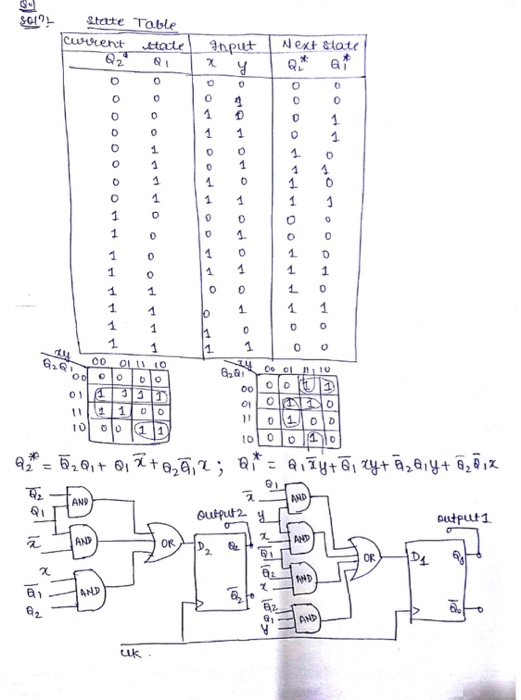 Sol?:-
State Table
Current state Input Next state
Q2 Q1 x y Q2* Q1*
0 0 0 0 0 0
0 0 0 1 0 0
0 0 1 0 0 1
0 0 1 1 0 1
0 1 0 0 1 0
0 1 0 1 1 1
0 1 1 0 1 0
0 1 1 1 1 1
1 0 0 0 0 0
1 0 0 1 0 0
1 0 1 0 1 0
1 0 1 1 1 1
1 1 0 0 1 0
1 1 0 1 1 1
1 1 1 0 0 0
1 1 1 1 0 0
xy
Q2Q1 00 01 11 10
00 0 0 0 0
01 1 1 1 1
11 1 1 0 0
10 0 0 1 1
xy
Q2Q1 00 01 11 10
00 0 0 1 1
01 0 1 1 0
11 0 1 0 0
10 0 0 1 0
Q2* = Q̄2Q1 + Q1x̄ + Q2Q̄1x ; Q1* = Q1x̄y + Q̄1xy + Q̄2Q1y + Q̄2Q̄1x
Q̄2
Q1
AND
x̄
AND
x
Q̄1
Q2
AND
OR
output2
D2 Q2
Q̄2
Q1
x̄
y
AND
x
Q̄1
AND
Q̄2
x
AND
Q̄2
Q1
y
AND
OR
output1
D1
clk.